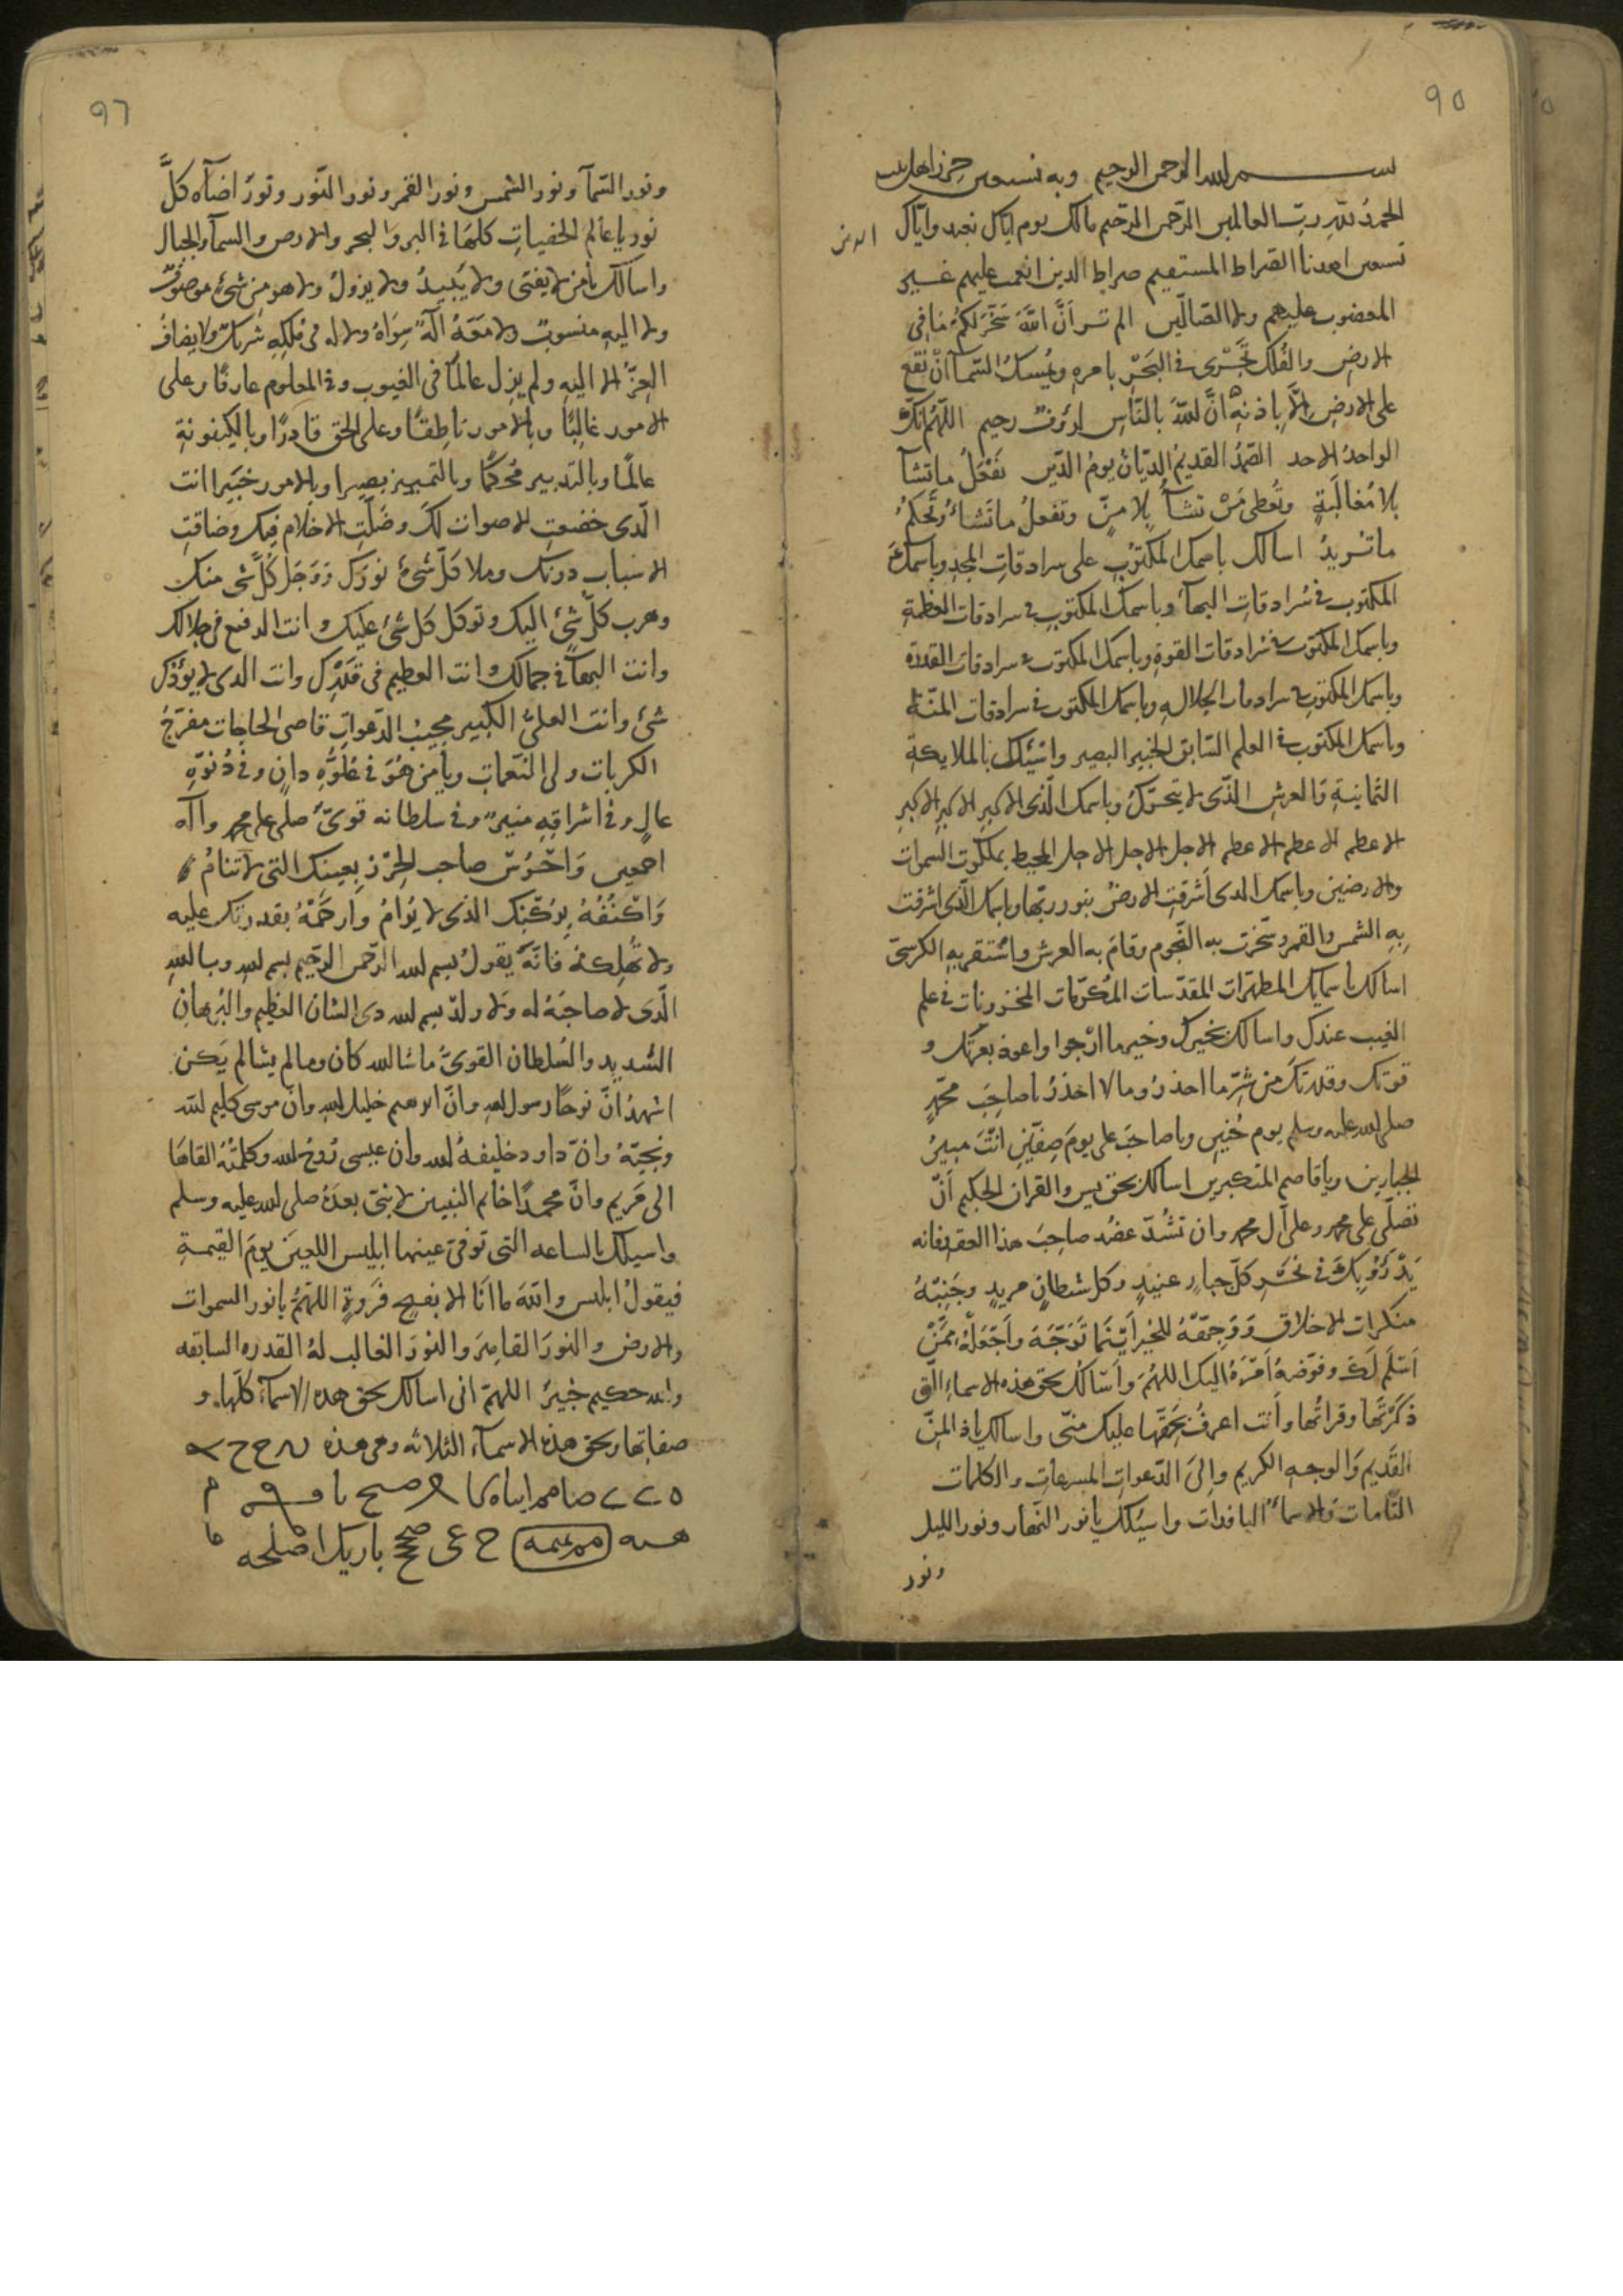 ٩٥
بسم الله الرحمن الرحيم وبه نستعين حرز اهل بيت
الحمدُ للّهِ ربّ العالمين الرّحمن الرّحيم مالك يوم ايّاك نعبد وايّاك
الدين
نستعين اهدنا الصّراط المستقيم صراط الدين انعمت عليهم غير
المغضوب عليهم ولا الضالّين الم تر اَنَّ اللّهَ سَخَّرَ لكمُ مَا فِى
الارضِ والفُلك تَجْرى فى البَحْرِ بامرهِ ويُمسكُ السّمآ انْ تقَع
على الارضِ اِلَّا باذنِهِ اِنَّ للّهَ بالنّاسِ لرؤفٌ رحيم اللّهُمَّ انّك
الواحدُ الاحد الصّمدُ القديمُ الديّان يومُ الدّين تفْعَلُ ما تشآ
بلا مُغالَبَةٍ وتُعطى مَنْ تشآءُ بلا منٍّ وتفعلُ ما تَشاءُ وتَحكمُ
ما تريدُ اسالك باسمك المكتوُب على سرادقاتِ المجدِ وباسمكَ
المكتوب فى سُرادقاتِ البهآء وباسمك المكتوبِ فى سرادقات العظمةِ
وباسمك المكتوب فى سُرادقات القوةِ وباسمك المكتوب فى سرادقات القدرة
وباسمك المكتوب فى سرادقات الجلالهِ وباسمك المكتوب فى سرادقات المنّة
وباسمك المكتوب فى العلم السّابق الخبير البصير واسئلك بالملايكةِ
الثمانيةِ وَالعرشِ الذّى لا يتحرّكُ وباسمك الّذى الاكبرِ الاكبرِ الاكبرِ
الاعظم الاعظم الاعظم الاجل الاجل الاجل المحيط بملكوت السموات
والارضين وباسمك الدى اَشرقت الارضُ بنور ربّها وباسمك الّذى اشرقت
بِهِ الشمس والقمر وسخّرت به النّجوم وقامَ به العرش واستقر بهِ الكرسىّ
اسالك باسمايك المطهّرات المقدّسات المُكرّمات المخزونات فى علم
الغيب عندك واسالك بخيرك وخير ما ارْجوا واعوذ بعزتك و
قوتك وقدرتك من شَرِّ ما احذرُ وما لا احْذرُ يا صاحِبَ محمّدٍ
صلى الله عليه وسلم يوم حُنينِ ويا صاحبَ على يومَ صِفّينِ انْتَ مبيرُ
الجبارين ويا قاصم المتكبرين اسالك بحق يس والقران الحكيم اَنْ
تصلّى على محمد وعلى آل محمد وان تشُدّ عضُد صاحِبَ هذا العقد فانه
يَدْرَؤُ بِكَ فى نَحْرِ كلّ جبارٍ عنيدٍ وكل شيطانٍ مريدٍ وجَنِبْهُ
منكرات الاخلاق وَوَجِهْهُ للخير اَيْنَما تَوَجّهَ واجْعَلْهُ ممَّنْ
اَسْلَم لَكَ وفوّضَ اَمْرَهُ اليك اللهُمَ وَاَسْالُك بحق هذه الاسماءِ الّتى
ذَكَرْتُها وقراتُها واَنت اعرفُ بحقّها عليك منّى واسالك يا ذ المنّ
القَديم وَالوجهِ الكريم والِى الدّعواتِ المسرعاتِ والكلمات
التّامات وَالاسماء النافدات واسئلك يا نور النّهار ونور الليل
ونور
٩٦
ونور السّمآ ونور الشمس ونور القمر ونور النّور ونورٌ اضآه كلَّ
نور يا عالم الخفياتِ كلهَا فى البر وَالبحر والارض والسمآ والجبال
واسالك يا من لا يفنى ولا يَبيدُ ولا يزولُ ولا هو من شئ موصوف
ولا اليهِ منسوبٌ ولا مَعَهُ الَهٌ سِوَاهُ ولا له فى مُلكِهِ شريكٌ ولا يضافُ
العِزّ الا اليهِ ولم يزل عالمًا فى الغيوب وفى المعلوم عارفًا وعلى
الامور غالِبًا وبالامور ناطِقًا وعلى الحق قادِرًا وبالكينونةِ
عالمًا وبالتدبير مُحكمًا وبالتمييز بصيرا وبالامور خبَيرا انت
الّدى خضعت الاصوات لكَ وضَلّتِ الاحلام فيك وضاقتِ
الاسْباب دونك وملا كلّ شئ نورك ووَجَل كُلّ شى منك
وهرب كلّ شئٍ اليك وتوكل كل شئ عليك وانت الرفيع فى جلالك
وانت البهآ فى جمالك وانت العظيم فى قدْرك وانت الدى لا يؤدك
شئ وانت العلىّ الكبير مجيبُ الدّعوات قاضى الحاجات مفرّجُ
الكربات ولى النّعمات ويا من هُوَ فى عُلوّهِ دانٍ وفى دُنُوّهِ
عالٍ وفى اشراقهِ منيرٌ وفى سلطانه قوىّ صلى على محمد وآله
اجمعين وَاحْرُسْ صاحب الحِرْز بِعينك التى لا تنامُ
وَاكْنُفهُ بِرُكْنِك الذى لا يُرَامُ وارحَمْهُ بقدرتك عليه
ولا تُهلِكه فانّهُ يقولُ بسم الله الرّحمن الرّحيم بسم اللهِ وباللهِ
الّدى لا صاحَبة له ولا ولدٌ بسم الله دى الشان العظيمِ والبُرهانِ
الشّديد والسُلطان القوىّ ما شا الله كان وما لم يشا لم يَكن
اشهدُ انّ نوحًا رسول اللهِ وانّ ابرهيم خليل اللهِ وانّ موسى كليم للّه
ونجيّهُ وانّ داود خليفهُ الله وان عيسى رُوحُ الله وكلمتُهُ القاهَا
الى مَريم وانّ محمدًا خاتم النبيين لا نبىّ بعدَهُ صلى الله عليه وسلم
واسيلك بالساعه التى توفى عينها ابليس اللعِين يومَ القيمةِ
فيقولُ ابليس واللّهَ ما اَنا الا
اللهمَّ يا نور السموات
والارض والنورَ القاهِرَ والنورَ الغالب لهُ القدره السابقه
والله حكيم خبيرُ اللهمّ انى اسالك بحق هده الاسمآء كلّها و
صفاتها وبحق هذه الاسمآء الثلاثه وهى هذه